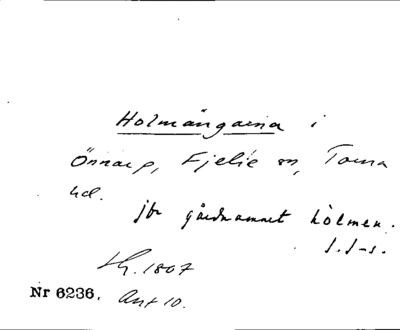 Holmängarna i
Önnarp, Fjelie sn, Torna
hd.
jfr gårdnamnet hòlmen.
J. J-s.
Lh. 1807
Nr 6236. Ant 10.